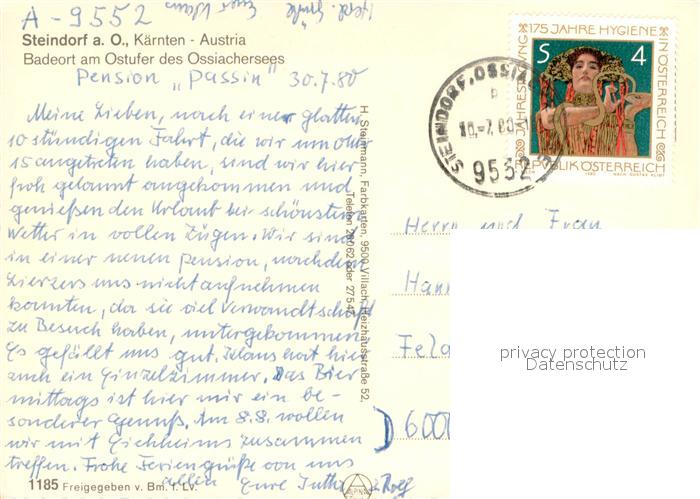 A-9552
Steindorf a. O., Kärnten - Austria
Badeort am Ostufer des Ossiachersees
Pension „Passin" 30.7.80
Meine Lieben, nach einer glatten
10 stündigen Fahrt, die wir um 0 Uhr
15 angetreten haben, sind wir hier
froh gelaunt angekommen und
genießen den Urlaub bei schönstem
Wetter in vollen Zügen. Wir sind
in einer neuen Pension, nachdem
uns nicht aufnehmen
konnten, da sie viel Verwandtschaft
zu Besuch haben, untergekommen.
Es gefällt uns gut. Klaus hat hier
auch ein Einzelzimmer. Das Bier
mittags ist hier mir ein be-
sonderer Genuß. Am 8.8. wollen
wir mit Eichheims zusammen
treffen. Frohe Feriengrüße von uns
allen Eure Jutta Rolf
1185 Freigegeben v. Bm. f. Lv.
H. Steinmann, Farbkarten, 9500 Villach, Heizhausstraße 52,
Telefon 28062 oder 27547
175 JAHRE HYGIENE
IN ÖSTERREICH
S 4
REPUBLIK ÖSTERREICH
1980 NACH GUSTAV KLIMT
STEINDORF, OSSIA
9552
Herrn und Frau
Hann
Feld
D 6000
privacy protection
Datenschutz